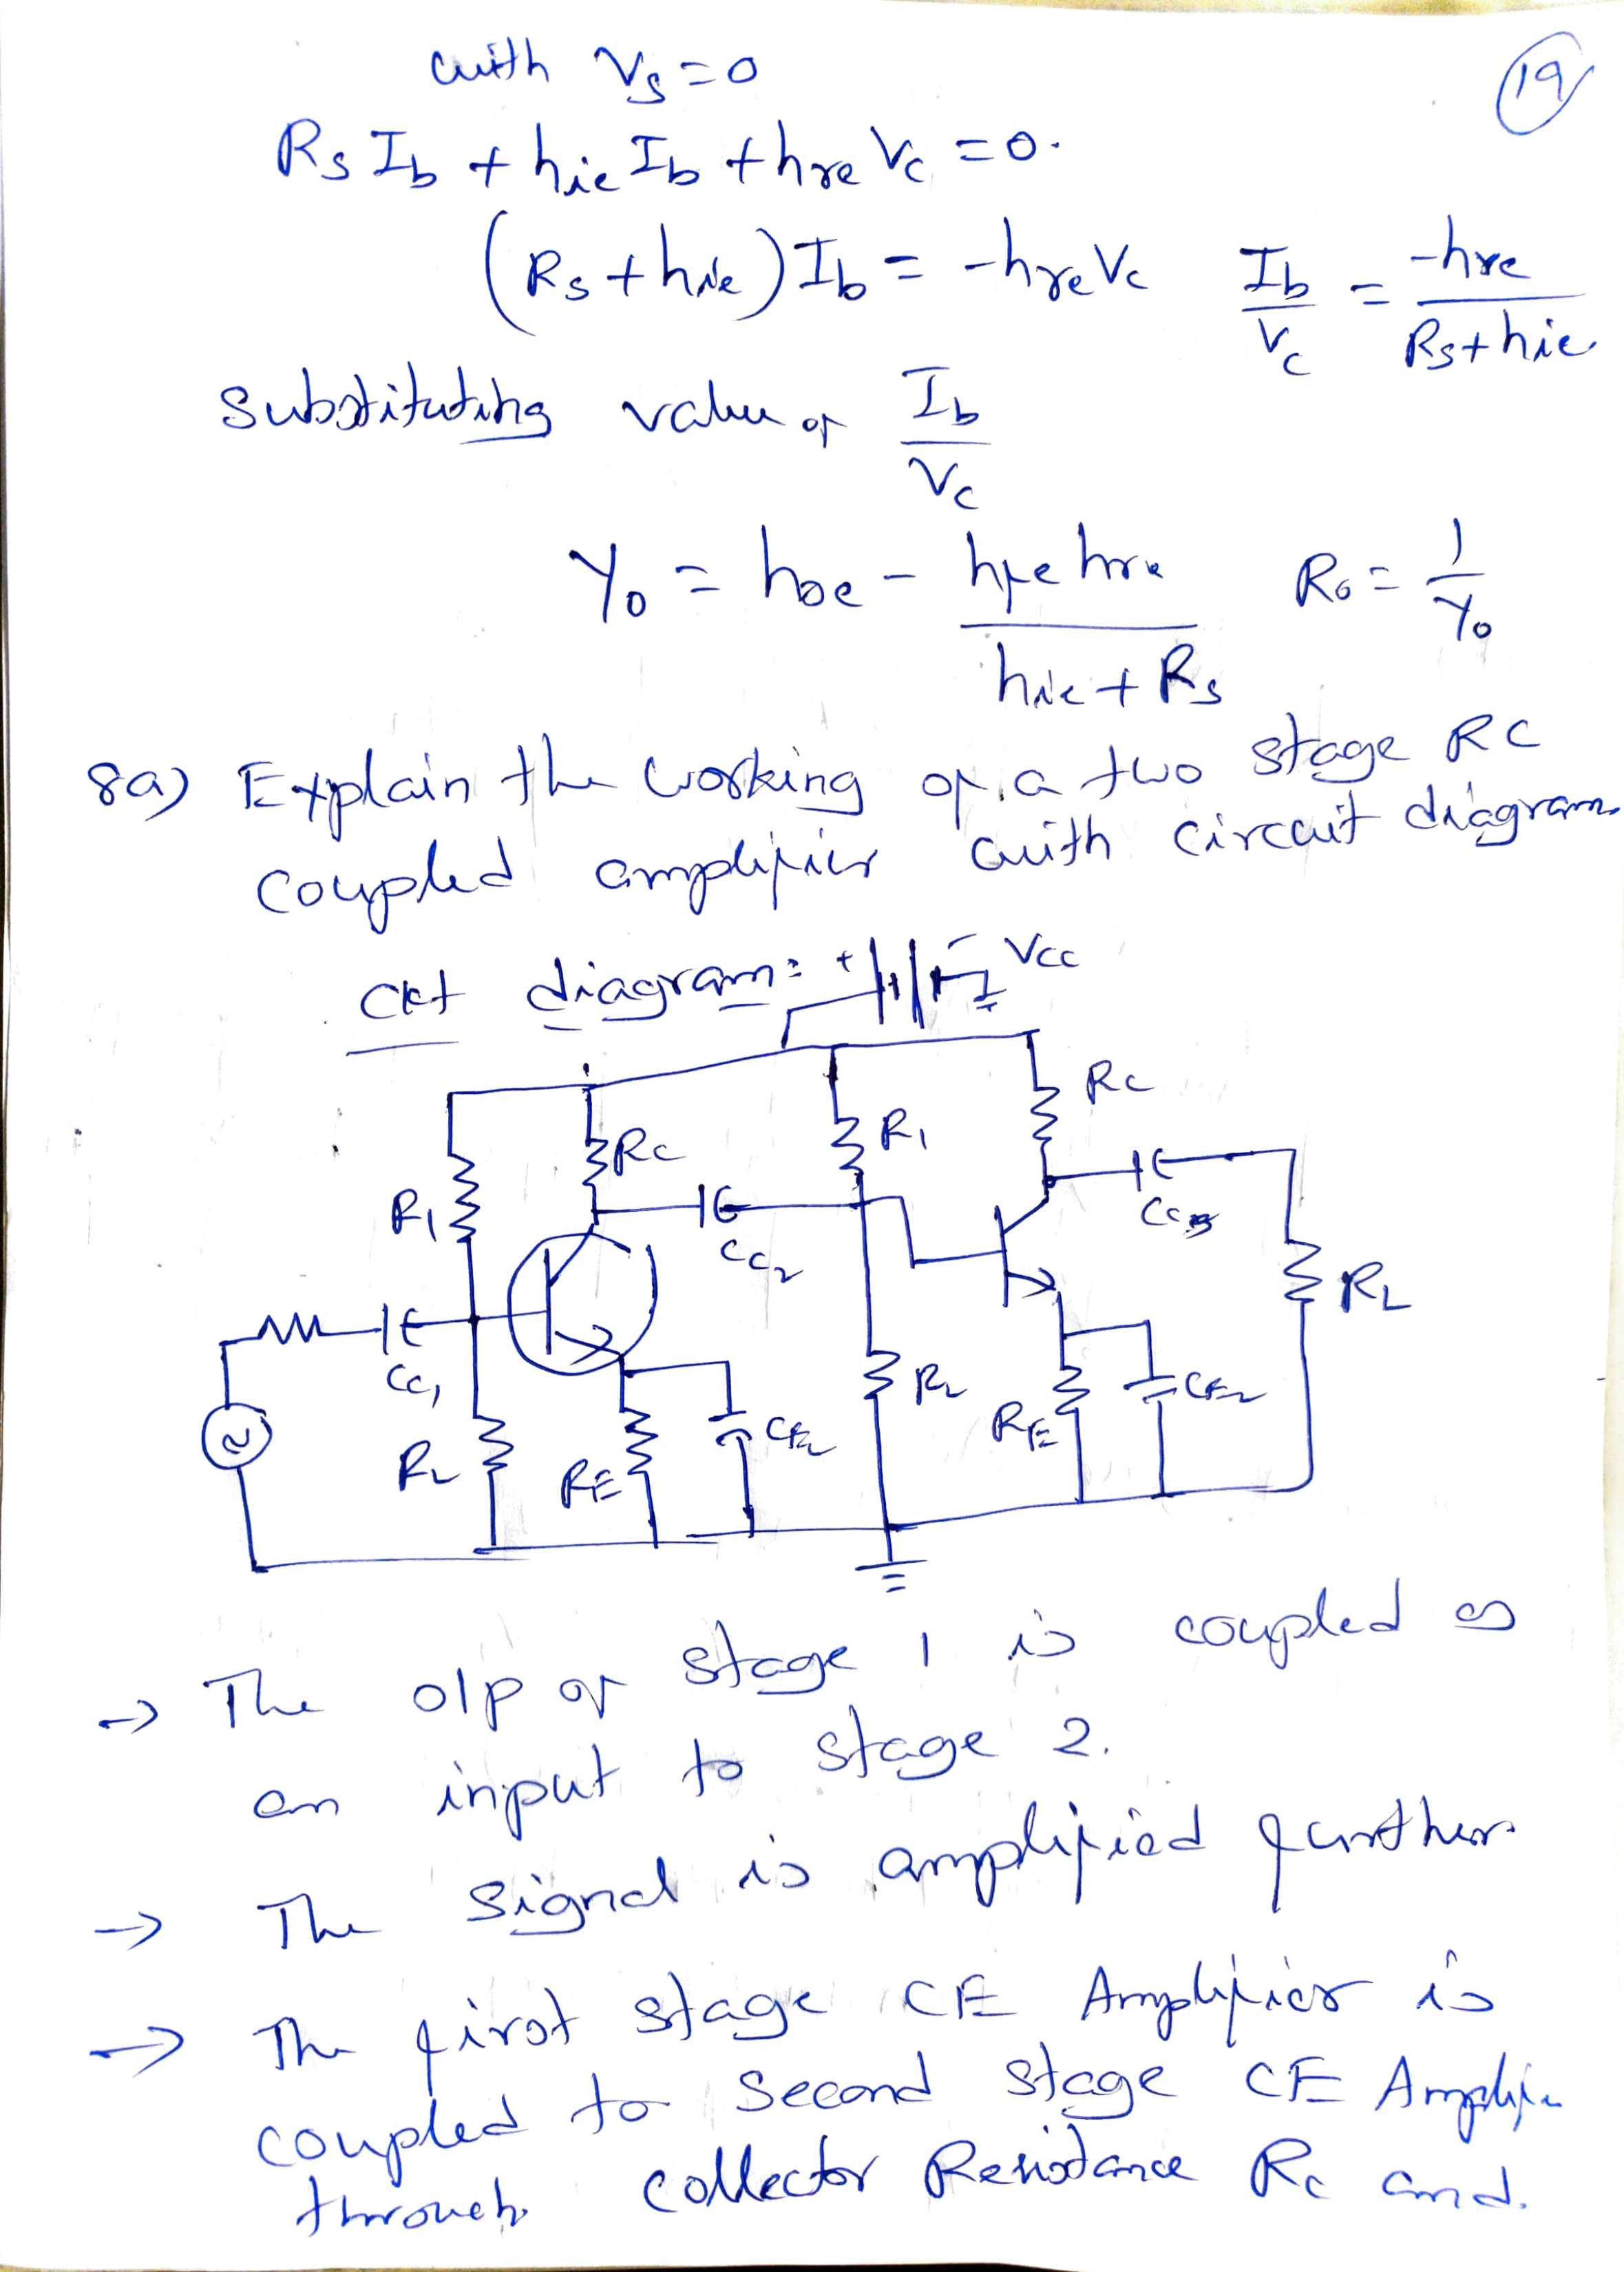 with Vs = 0
19
Rs Ib + hie Ib + hre Vc = 0.
(Rs + hie) Ib = -hre Vc   Ib/Vc = -hre/(Rs + hie)
substituting value of Ib/Vc
Yo = hoe - hfe hre/(hie + Rs)   Ro = 1/Yo
8a) Explain the working of a two stage RC
coupled amplifier with circuit diagram
ckt diagram: + - Vcc
Rc
R1
Rc
R1
Cc2
Cc3
RL
Cc1
R2
RE
CE2
R2
RE
CE2
→ The o/p of stage 1 is coupled as
an input to stage 2.
→ The signal is amplified further
→ The first stage CE Amplifier is
coupled to second stage CE
through collector Resistance Rc and.